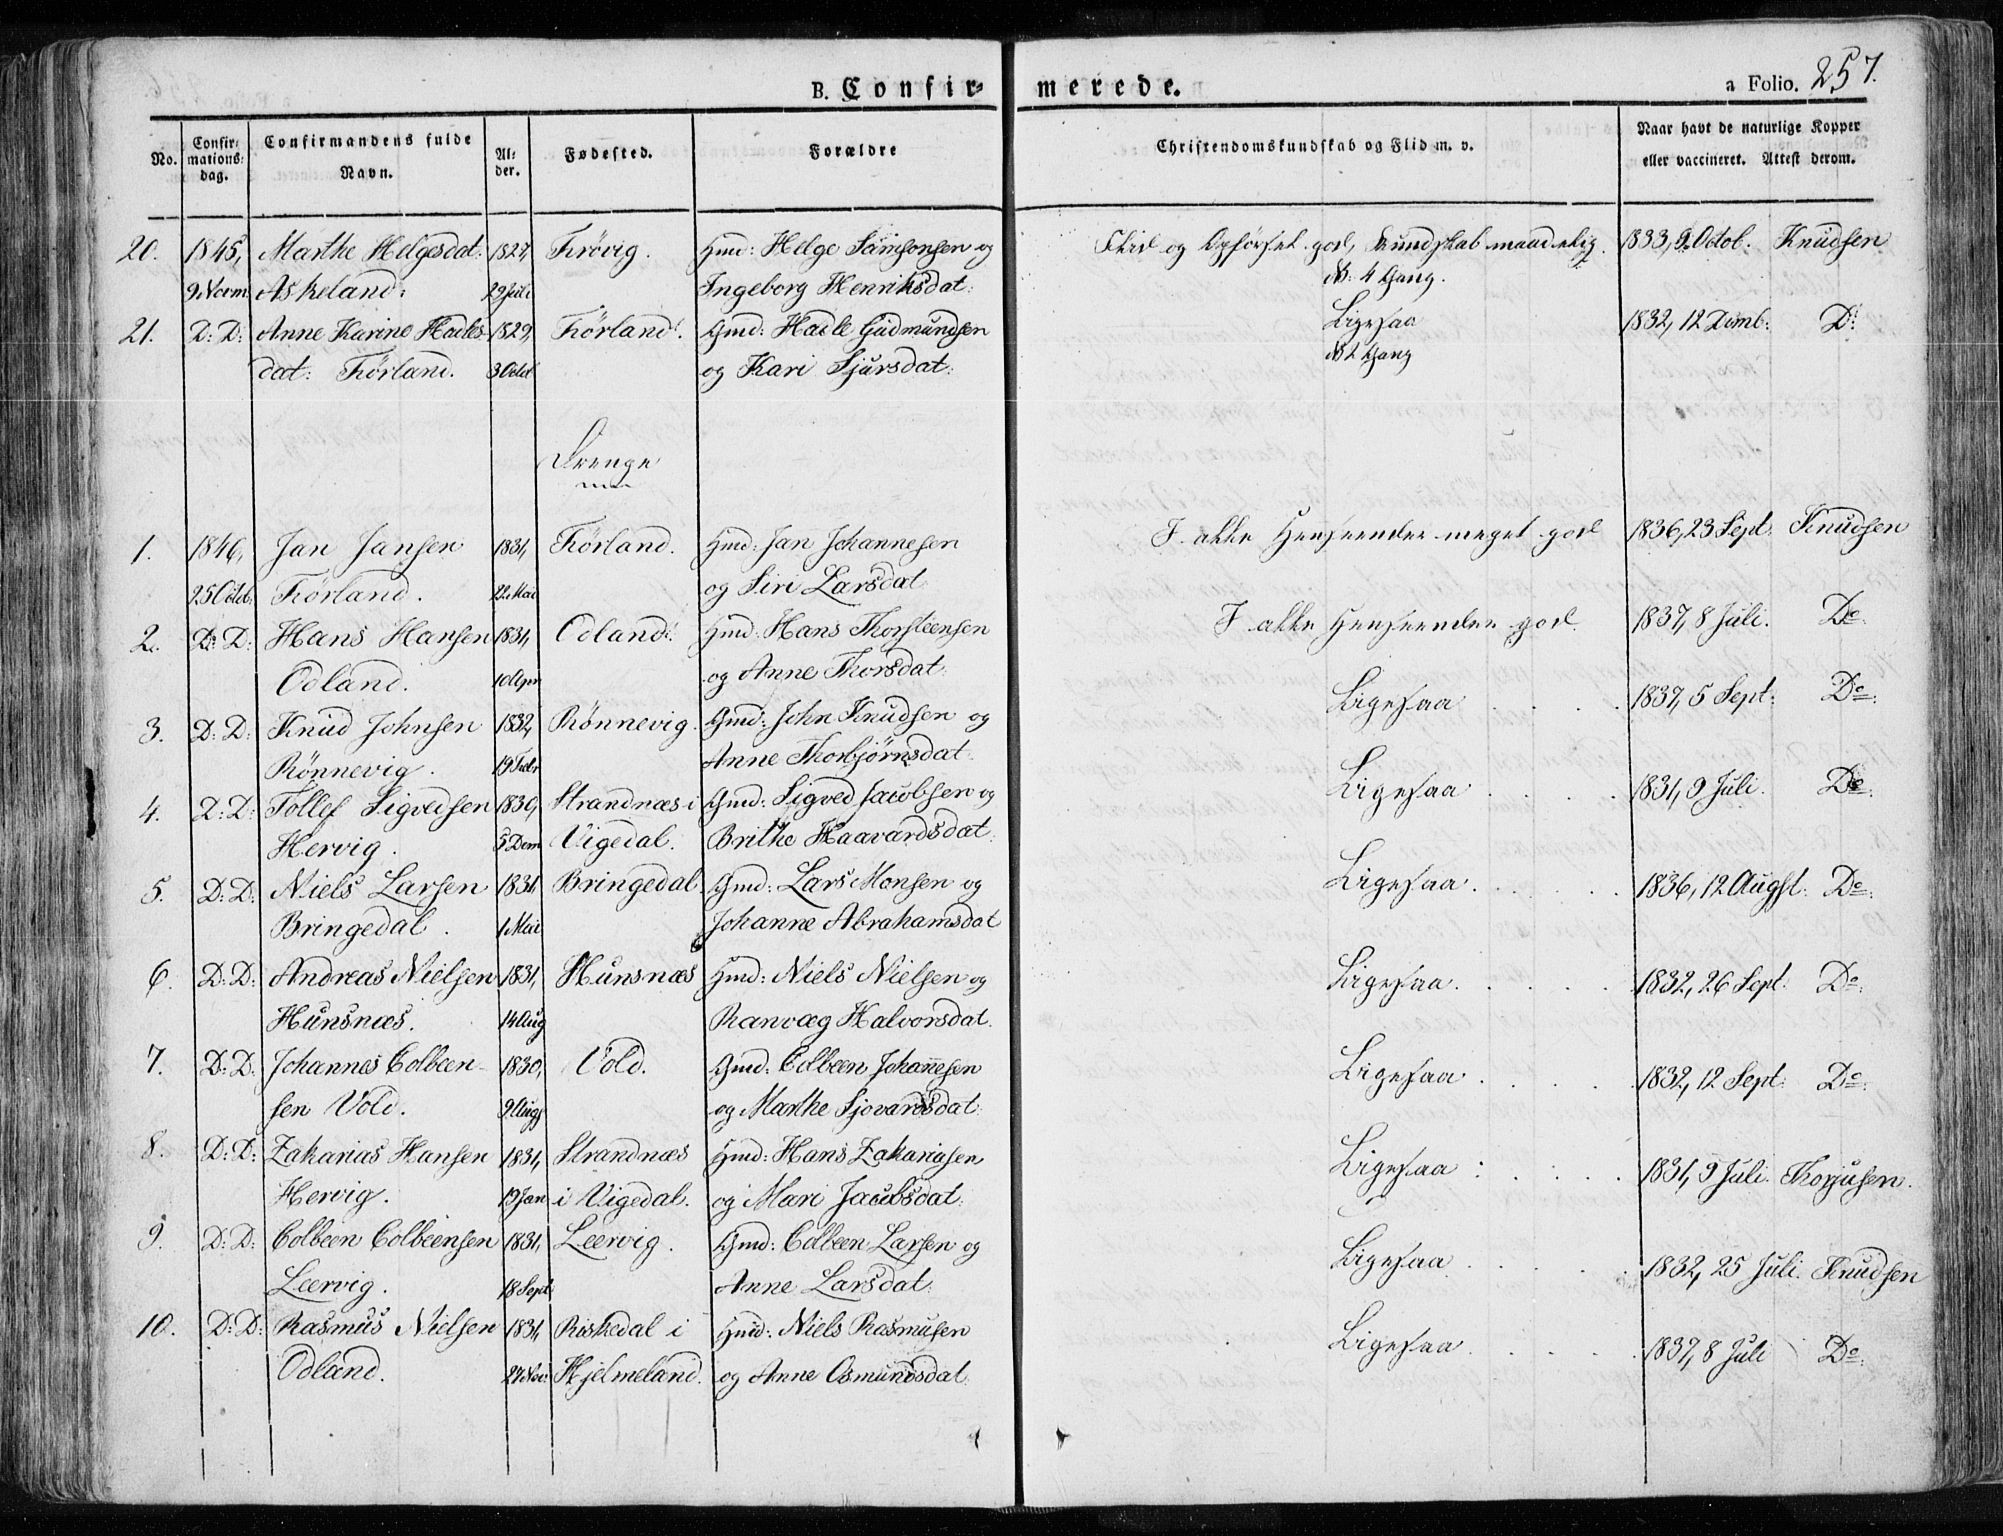 B. Confirmerede. a Folio. 257.
No. Confirmationsdag. Confirmandens fulde Navn. Alder. Fødested. Forældre Christendomskundskab og Flid m. v. Naar havt de naturlige Kopper eller vaccineret. Attest derom.
20. 1845, Marthe Helgesdat: 1827, Frövig. Gmd: Helge Samsonsen og Flid og Opförsel god, Kundskab maadelig. 1833, 9 Octob. Knudsen
9 Novm Askeland. 29 Juli Ingeborg Henriksdat: NB: 4 Gang.
21. D: D: Anne Karine Hadles- 1829, Förland. Gmd: Hadle Gudmundsen Ligesaa 1832, 12 Decmb: D:
dat: Förland. 3 Octob og Kari Sjursdat: NB 2 Gang
Drenge
1. 1846, Jan Jansen 1831, Förland. Gmd: Jan Johannesen I alle Henseender meget god 1836, 23 Sept: Knudsen
25 Octob: Förland. 22 Mai og Siri Larsdat
2. D: D: Hans Hansen 1831, Odland. Gmd: Hans Thorsteensen I alle Henseender god. 1837, 8 Juli. Do
Odland. 10 Apr og Anne Thorsdat
3. D: D: Knud Johnsen 1832, Rönnevig. Gmd: John Knudsen og Ligesaa 1837, 5 Sept: Do:
Rönnevig. 19 Febr Anne Thorbjörnsdat
4. D: D: Tollef Sigvedsen 1830, Strandnæs i Gmd: Sigved Jacobsen og Ligesaa 1831, 9 Juli. Do
Hervig. 5 Decm Vigedal. Brithe Haavardsdat:
5. D: D: Niels Larsen 1831 Bringedal Gmd: Lars Monsen og Ligesaa. 1836, 12 Augst. Do:
Bringedal. 1 Mai Johanne Abrahamsdat
6. D: D: Andreas Nielsen 1831, Hunsnæs Gmd: Niels Nielsen og Ligesaa. 1832, 26 Sept: Do:
Hunsnæs. 14 Aug Ranvæg Halvorsdat.
7. D: D: Johannes Colbeen- 1830, Vold. Gmd: Colbeen Johannesen Ligesaa 1832, 12 Sept: Do:
sen Vold. 9 Augs og Marthe Sjovardsdat:
8. D: D: Zakarias Hansen 1831, Strandnæs Gmd: Hans Zakariasen Ligesaa 1831, 9 Juli Torjusen.
Hervig. 19 Jan i Vigedal. og Mari Jacobsdat:
9. D: D: Colbeen Colbeensen 1831, Leervig. Gmd: Colbeen Larsen og Ligesaa 1832, 25 Juli. Knudsen
Leervig. 18 Sept Anne Larsdat:
10. D: D: Rasmus Nielsen 1831, Riskedal i Gmd: Niels Rasmusen Ligesaa 1837, 8 Juli Do:
Odland. 27 Nov: Hjelmeland. og Anne Osmundsdat.